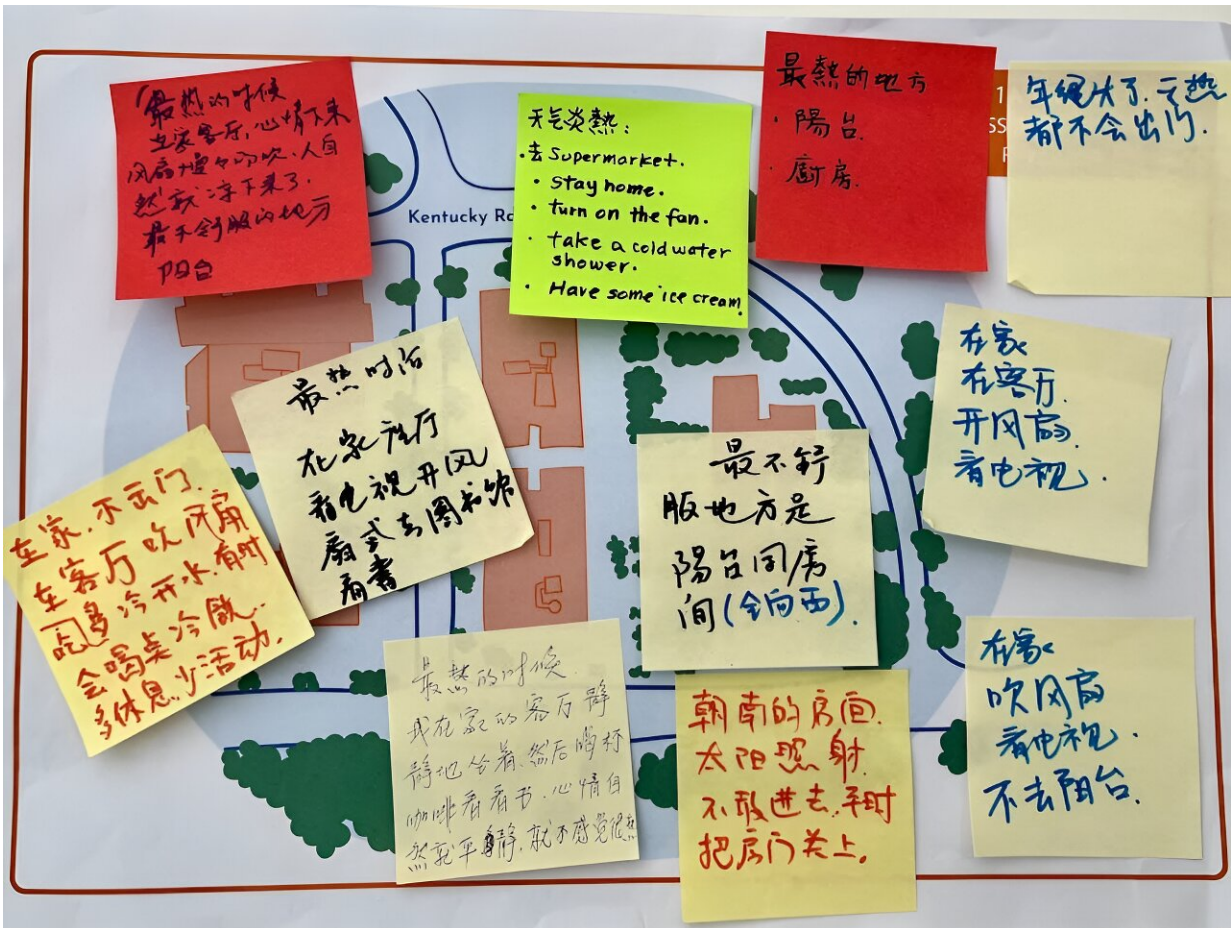 最热的时候
在家客厅,心情下来
风扇慢々的吹、人自
然就凉下来了.
最不舒服的地方
阳台
Kentucky Ro
天气炎熱:
· 去 Supermarket.
· Stay home.
· turn on the fan.
· take a cold water
shower.
· Have some ice cream.
最熱的地方
· 陽台.
· 廚房.
1
SS
年纪大了.天热
都不会出门.
最热时治
在家in厅
看电视开风
扇或去图书馆
看書
在家
在客厅.
开风扇.
看电视.
在家.不出门.
在客厅吹风扇
吃多冷开水.有时
会喝点冷飲.
多休息.少活动.
最不舒
服地方是
陽台同房
间(全向西).
最熱的时候.
我在家的客厅静
静地坐着.然后喝杯
咖啡看看书.心情自
然就平静.就不感觉很热
朝南的房间.
太阳照射.
不敢进去.平时
把房门关上.
在家
吹风扇
看电视.
不去阳台.